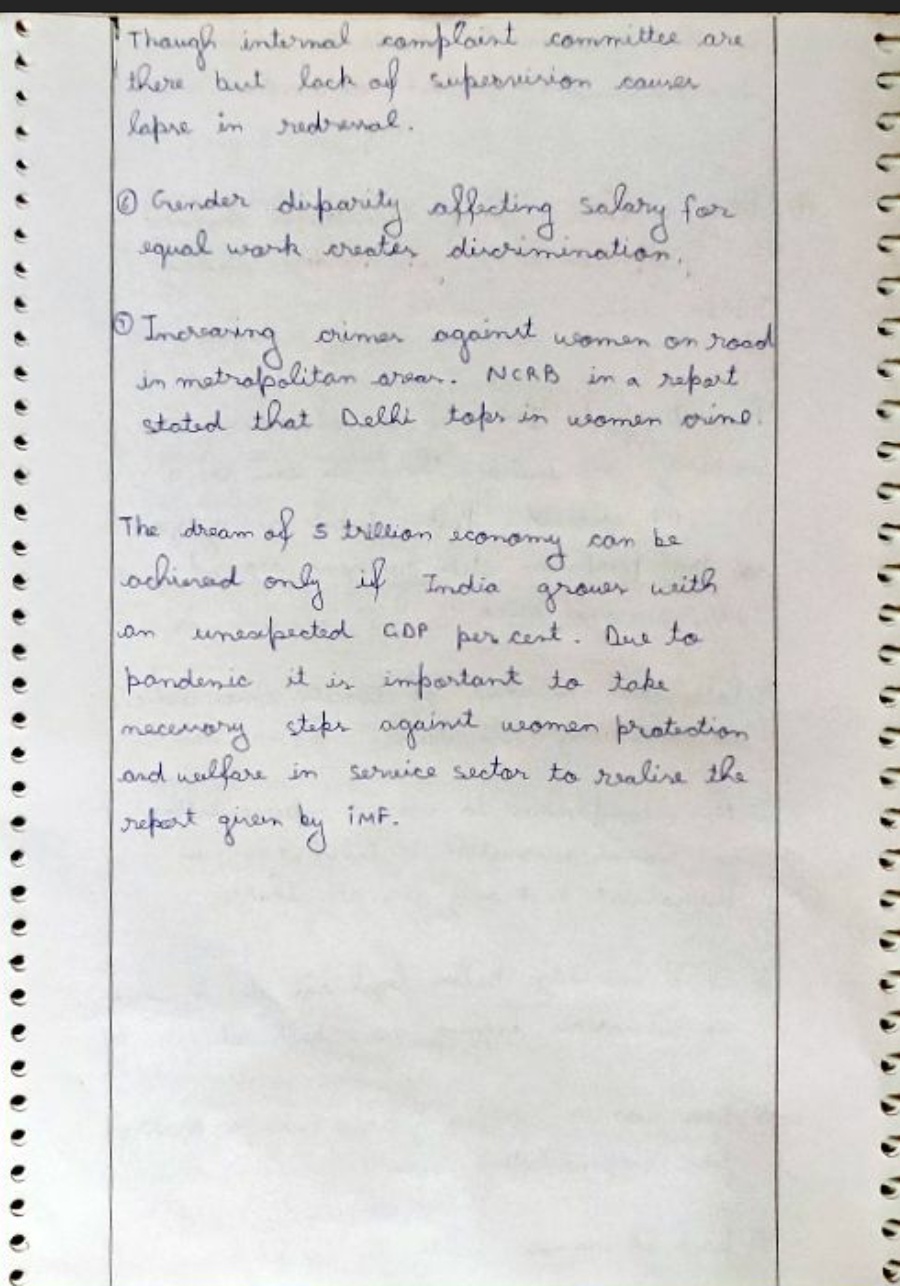 Though internal complaint committee are
there but lack of supervision causes
lapse in redressal.
⑥ Gender disparity affecting salary for
equal work creates discrimination.
⑦ Increasing crimes against women on road
in metropolitan areas. NCRB in a report
stated that Delhi tops in women crime.
The dream of 5 trillion economy can be
achieved only if India grows with
an unexpected GDP per cent. Due to
pandemic it is important to take
necessary steps against women protection
and welfare in service sector to realise the
report given by IMF.